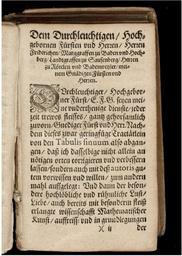 Dem Durchleuchtigen / Hoch-
gebornen Fürsten vnd Herren / Herren
Friderichen / Marggraffen zu Baden vnd Hoch-
berg / Landtgraffen zu Sausenberg / Herren
zu Röteln vnd Badenweiler / mei-
nem Gnädigen Fürsten vnd
Herren.
Durchleuchtiger / Hochgebor-
ner Fürst / E. F. G. seyen mei-
ne vnderthenige dienste / jeder
zeit trewes fleisses / gantz gehorsamlich
zuvorn. Gnediger Fürst vnd Herr. Nach-
dem dieses zwar geringfüge Tractätlein
von den Tabulis sinuum also abgan-
gen / daß ich dasselbige nicht allein an
nötigen orten corrigieren vnd verbessern
lassen / sondern auch mit deß autoris gu-
ten vorwissen vnd willen / zum andern
mahl auffgelegt: Vnd dann der beson-
dere hochlöbliche vnd rühmliche Lust vnd
Liebe / auch bereits mit besonderm fleiß
erlangte wissenschafft Mathematischer
Kunst / aufferzo: vnd in grundlegungen
der